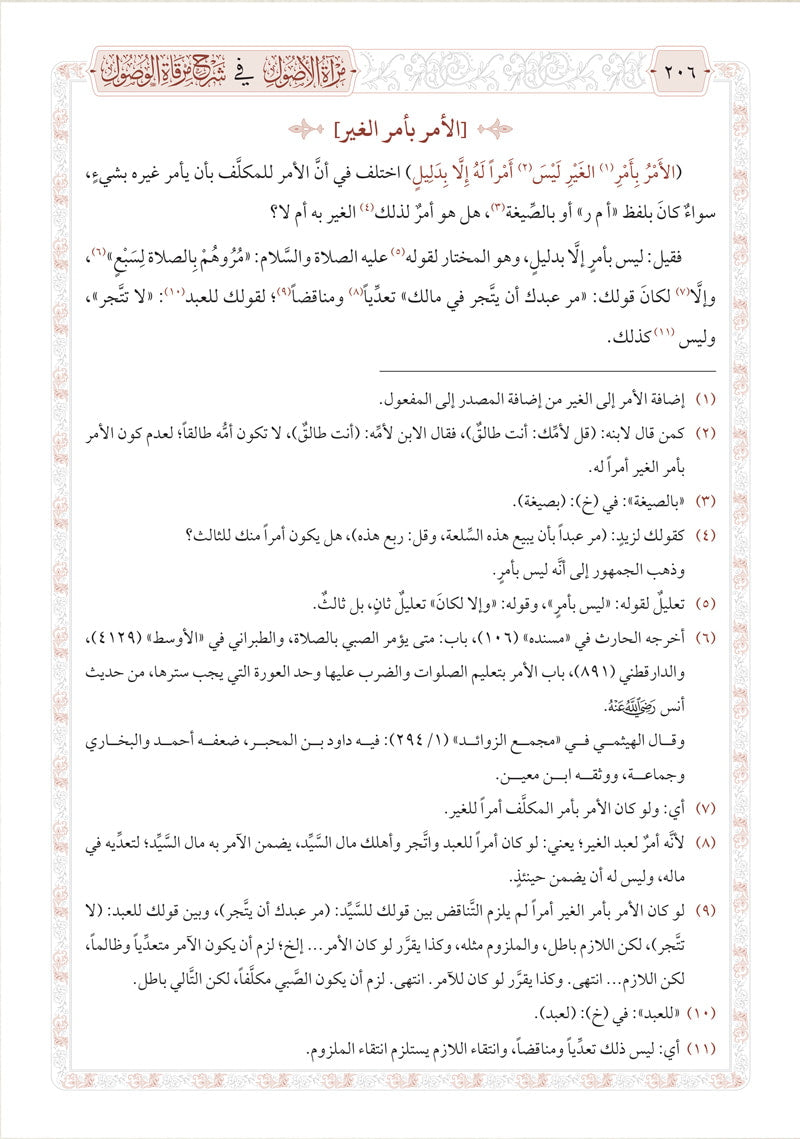 ٢٠٦
مرآة الأصول في شرح مرقاة الوصول
[الأمر بأمر الغير]
(الأَمْرُ بِأَمْرِ(١) الغَيْرِ لَيْسَ(٢) أَمْراً لَهُ إِلَّا بِدَلِيلٍ) اختلف في أنَّ الأمر للمكلَّف بأن يأمر غيره بشيءٍ،
سواءٌ كانَ بلفظ «أ م ر» أو بالصِّيغة(٣)، هل هو أمرٌ لذلك(٤) الغير به أم لا؟
فقيل: ليس بأمرٍ إلَّا بدليلٍ، وهو المختار لقوله(٥) عليه الصلاة والسَّلام: «مُرُوهُمْ بِالصلاة لِسَبْعٍ»(٦)،
وإلَّا(٧) لكانَ قولك: «مر عبدك أن يتَّجر في مالك» تعدِّياً(٨) ومناقضاً(٩)؛ لقولك للعبد(١٠): «لا تتَّجر»،
وليس(١١) كذلك.
(١) إضافة الأمر إلى الغير من إضافة المصدر إلى المفعول.
(٢) كمن قال لابنه: (قل لأمِّك: أنت طالقٌ)، فقال الابن لأمِّه: (أنت طالقٌ)، لا تكون أمُّه طالقاً؛ لعدم كون الأمر
بأمر الغير أمراً له.
(٣) «بالصيغة»: في (خ): (بصيغة).
(٤) كقولك لزيدٍ: (مر عبداً بأن يبيع هذه السِّلعة، وقل: ربع هذه)، هل يكون أمراً منك للثالث؟
وذهب الجمهور إلى أنَّه ليس بأمرٍ.
(٥) تعليلٌ لقوله: «ليس بأمرٍ»، وقوله: «وإلا لكانَ» تعليلٌ ثانٍ، بل ثالثٌ.
(٦) أخرجه الحارث في «مسنده» (١٠٦)، باب: متى يؤمر الصبي بالصلاة، والطبراني في «الأوسط» (٤١٢٩)،
والدارقطني (٨٩١)، باب الأمر بتعليم الصلوات والضرب عليها وحد العورة التي يجب سترها، من حديث
أنس رَضِيَ اللَّهُ عَنْهُ.
وقـال الهيثمـي فـي «مجمـع الزوائـد» (١/ ٢٩٤): فيـه داود بـن المحبـر، ضعفـه أحمـد والبخـاري
وجماعـة، ووثقـه ابـن معيـن.
(٧) أي: ولو كان الأمر بأمر المكلَّف أمراً للغير.
(٨) لأنَّه أمرٌ لعبد الغير؛ يعني: لو كان أمراً للعبد واتَّجر وأهلك مال السَّيِّد، يضمن الآمر به مال السَّيِّد؛ لتعدِّيه في
ماله، وليس له أن يضمن حينئذٍ.
(٩) لو كان الأمر بأمر الغير أمراً لم يلزم التَّناقض بين قولك للسَّيِّد: (مر عبدك أن يتَّجر)، وبين قولك للعبد: (لا
تتَّجر)، لكن اللازم باطل، والملزوم مثله، وكذا يقرَّر لو كان الأمر... إلخ؛ لزم أن يكون الآمر متعدِّياً وظالماً،
لكن اللازم... انتهى. وكذا يقرَّر لو كان للآمر. انتهى. لزم أن يكون الصَّبي مكلَّفاً، لكن التَّالي باطل.
(١٠) «للعبد»: في (خ): (لعبد).
(١١) أي: ليس ذلك تعدِّياً ومناقضاً، وانتقاء اللازم يستلزم انتقاء الملزوم.